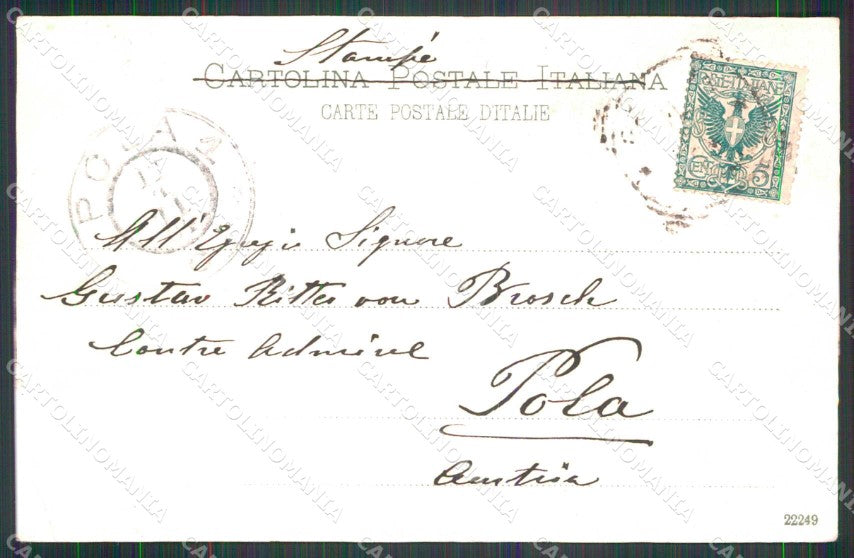 Stampe
CARTOLINA POSTALE ITALIANA
CARTE POSTALE D'ITALIE
POSTE ITALIANE
CENT. 5
POLA
All'Egregio Signore
Gustav Ritter von Brosch
Contre Admiral
Pola
Austria
22249
CARTOLINOMANIA